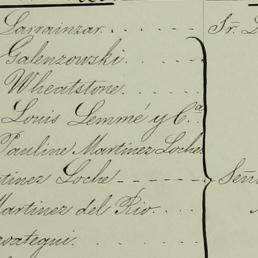 Larrainzar
Galenzowski
Wheatstone
Louis Lemmé y Cª
Pauline Martinez Loche
tinez Loche
Martinez del Rio
Sr.
Señ